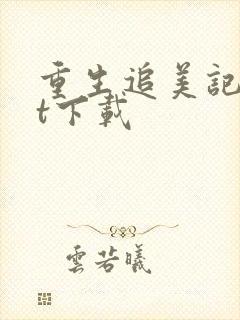 重生追美記
t下載
雲若曦